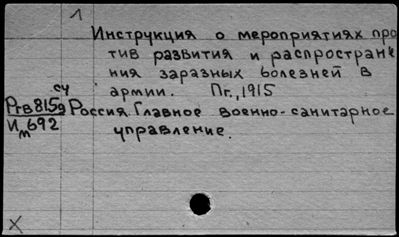 1
Инструкция о мероприятиях про
тив развития и распростране
ния заразных болезней в
армии. Пг., 1915
су
Ргв815g Россия. Главное военно-санитарное
Иm692 управление.
X